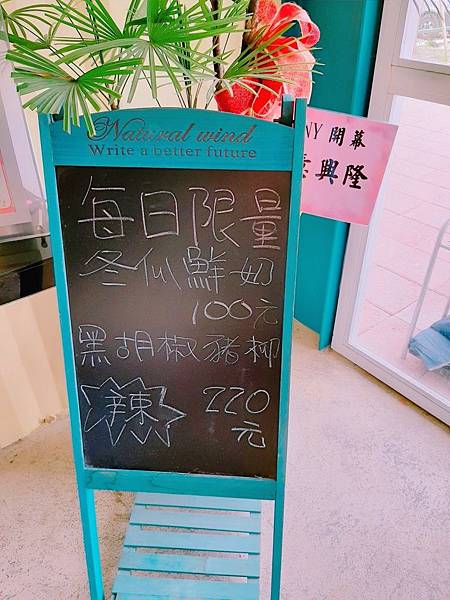 Natural wind
Write a better future
每日限量
冬瓜鮮奶
100元
黑胡椒豬柳
辣 220
元
NY 開幕
興隆